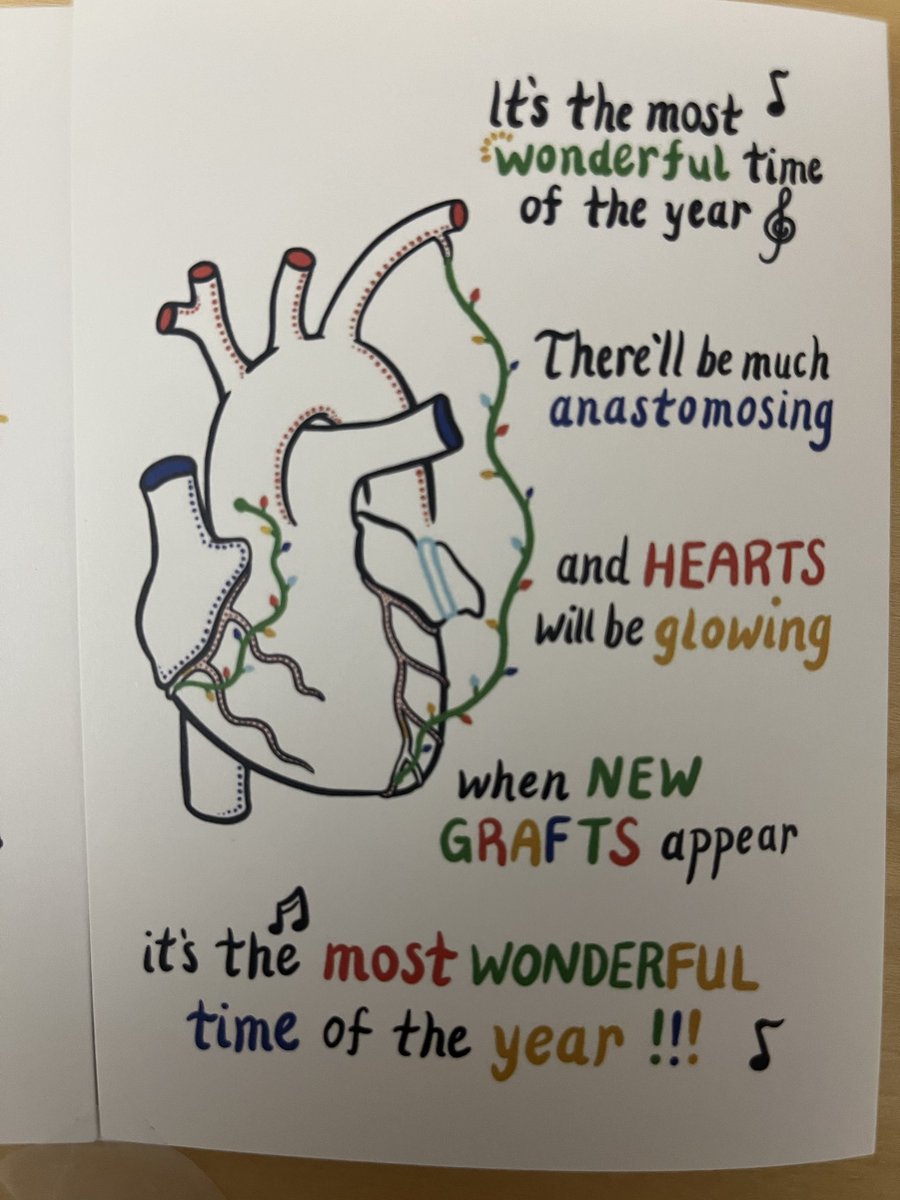 It's the most
wonderful time
of the year
There'll be much
anastomosing
and HEARTS
will be glowing
when NEW
GRAFTS appear
it's the most WONDERFUL
time of the year !!!